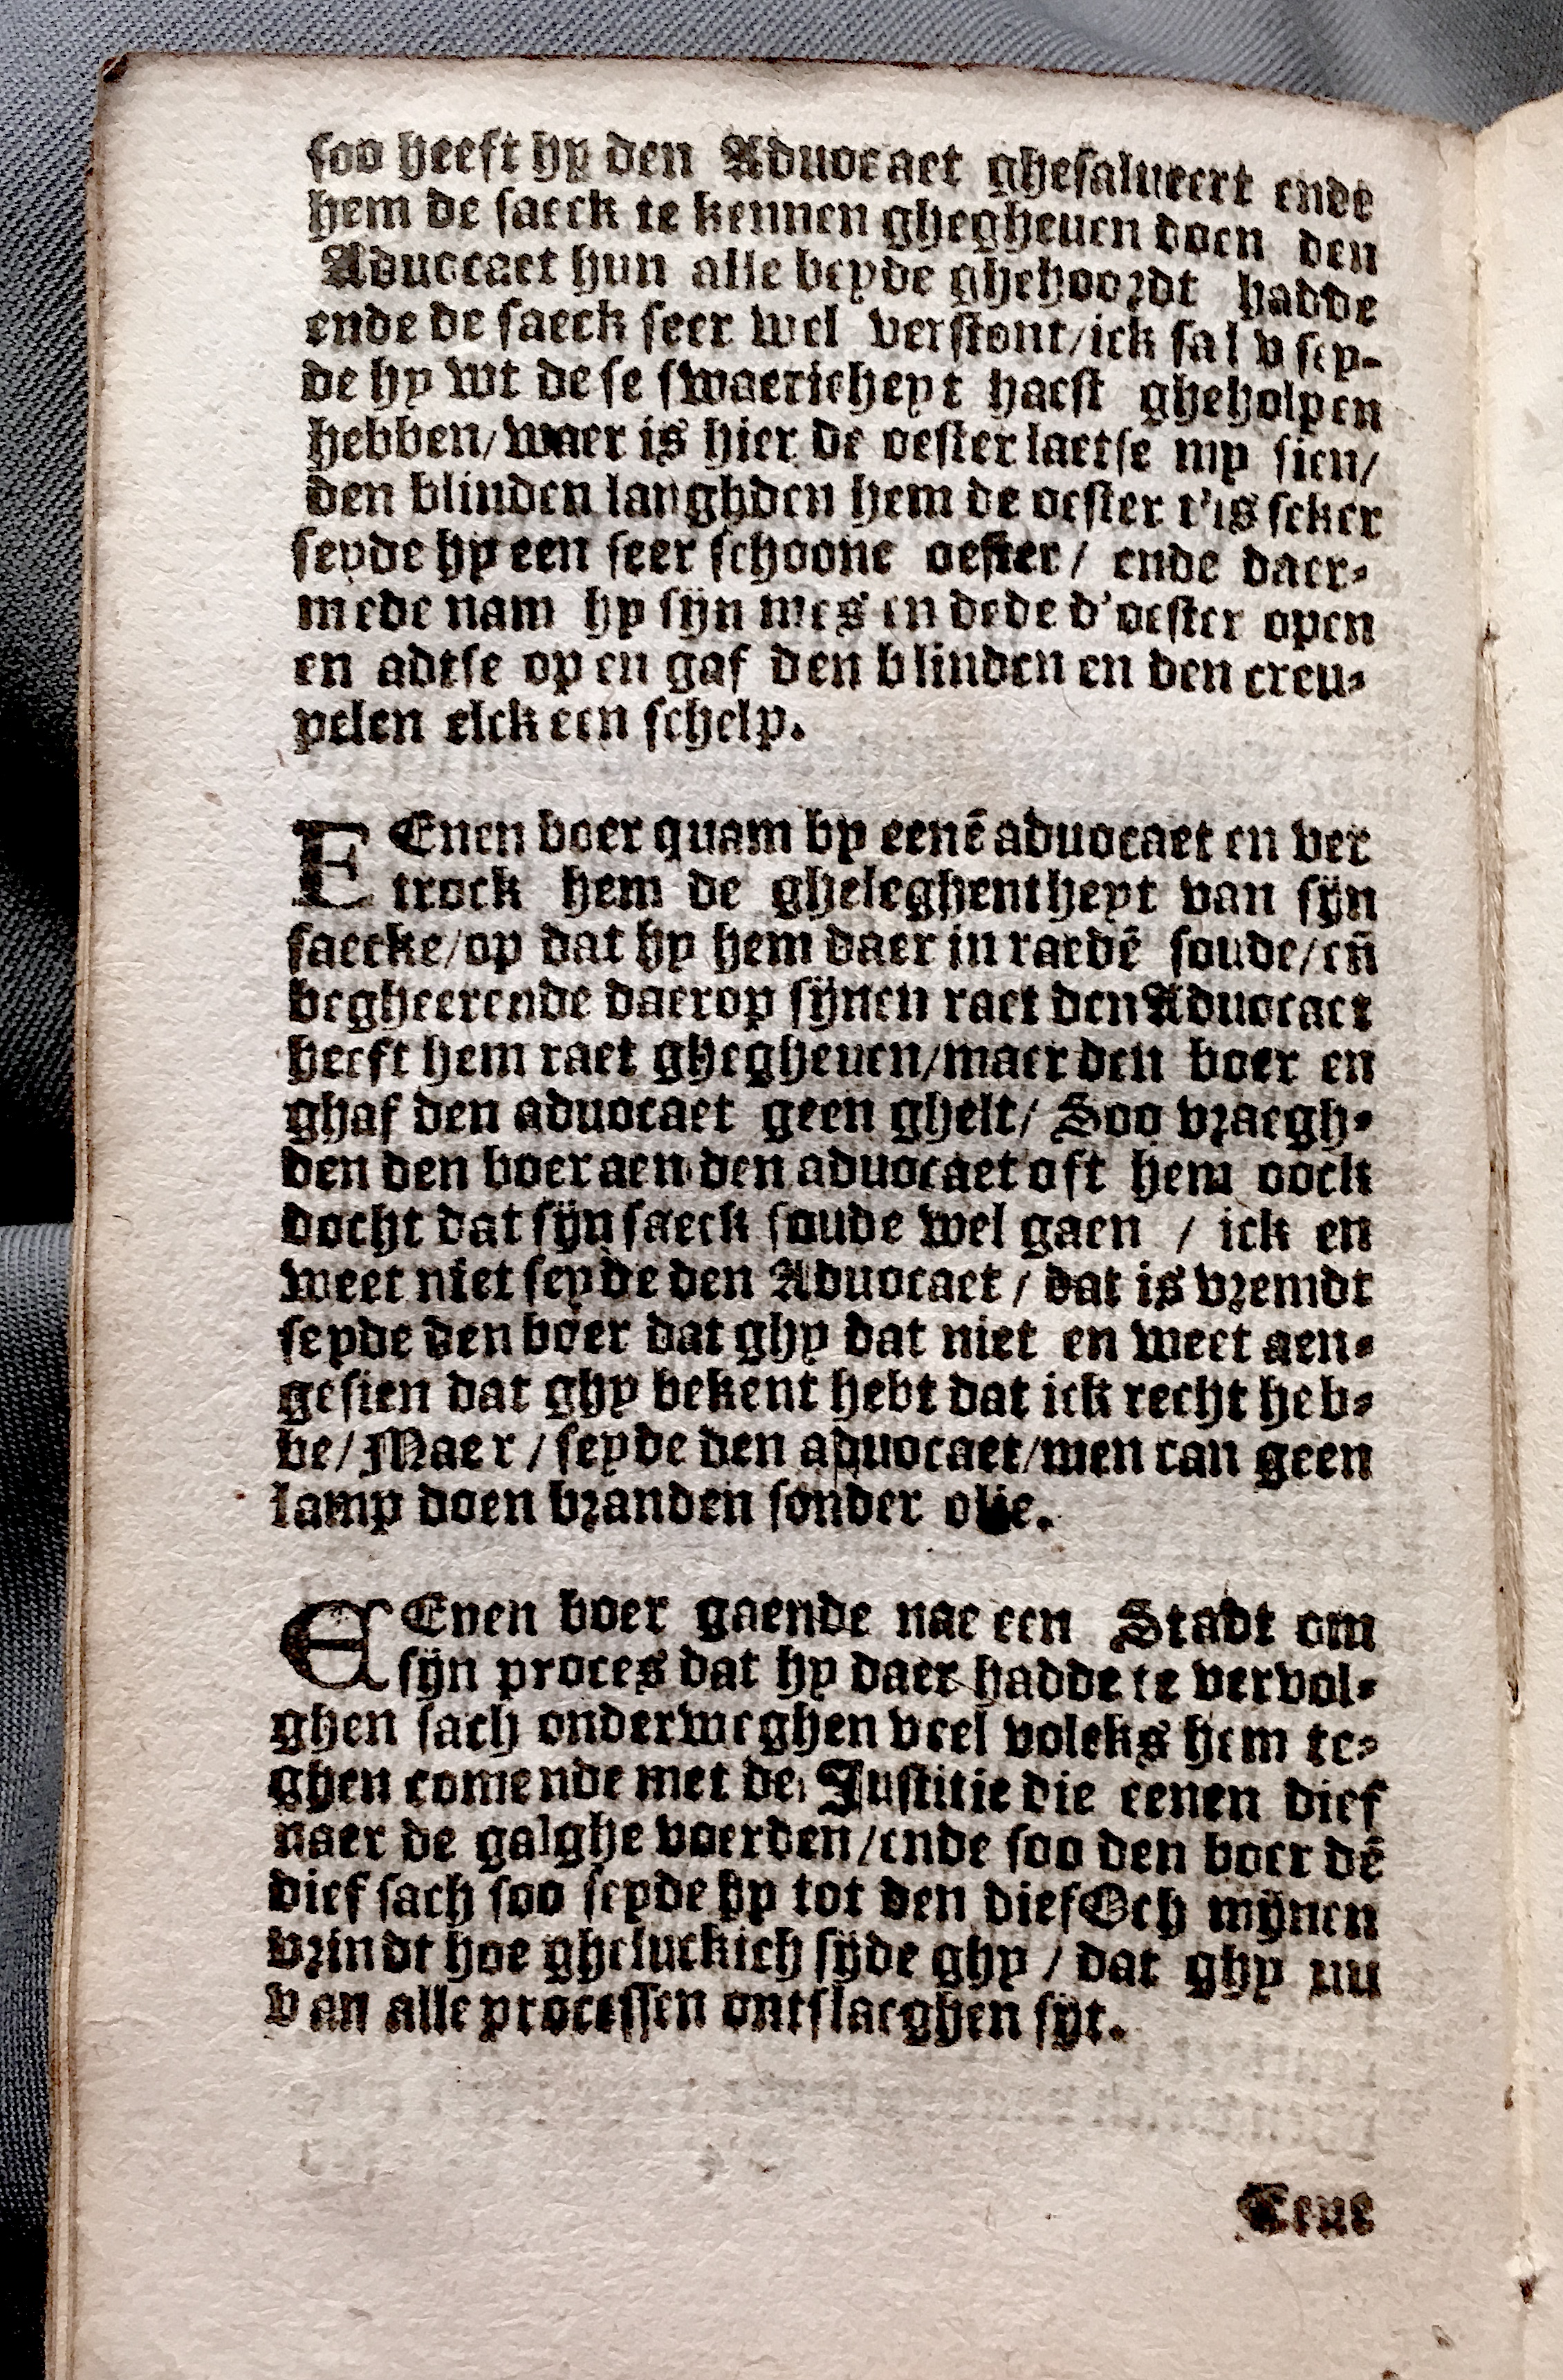 soo heeft hy den Aduocaet ghesalueert ende
hem de saeck te kennen ghegheuen doen den
Aduocaet hun alle beyde ghehoordt hadde
ende de saeck seer wel verstont/ick sal v sey-
de hy wt dese swaericheyt haest gheholpen
hebben/waer is hier de oester laetse my sien/
den blinden langhden hem de oester t'is seker
seyde hy een seer schoone oester/ ende daer-
mede nam hy sijn mes en dede d'oester open
en adtse op en gaf den blinden en den creu-
pelen elck een schelp.
EEnen boer quam by eenē aduocaet en ver
trock hem de gheleghentheyt van sijn
saecke/op dat hy hem daer in raedē soude/en̄
begheerende daerop sijnen raet den Aduocaet
heeft hem raet ghegheuen/maer den boer en
ghaf den aduocaet geen ghelt/ Soo vraegh-
den den boer aen den aduocaet oft hem oock
docht dat sijn saeck soude wel gaen / ick en
weet niet seyde den Aduocaet / dat is vremdt
seyde den boer dat ghy dat niet en weet aen-
gesien dat ghy bekent hebt dat ick recht heb-
be/Maer/seyde den aduocaet/men can geen
lamp doen branden sonder olie.
EEnen boer gaende nae een Stadt om
sijn proces dat hy daer hadde te vervol-
ghen sach onderweghen veel volcks hem te-
ghen comende met de Iustitie die eenen dief
naer de galghe voerden/ende soo den boer dē
dief sach soo seyde hy tot den dief Och mijnen
vrindt hoe gheluckich sijde ghy / dat ghy nu
van alle processen ontslaeghen sijt.
Eene